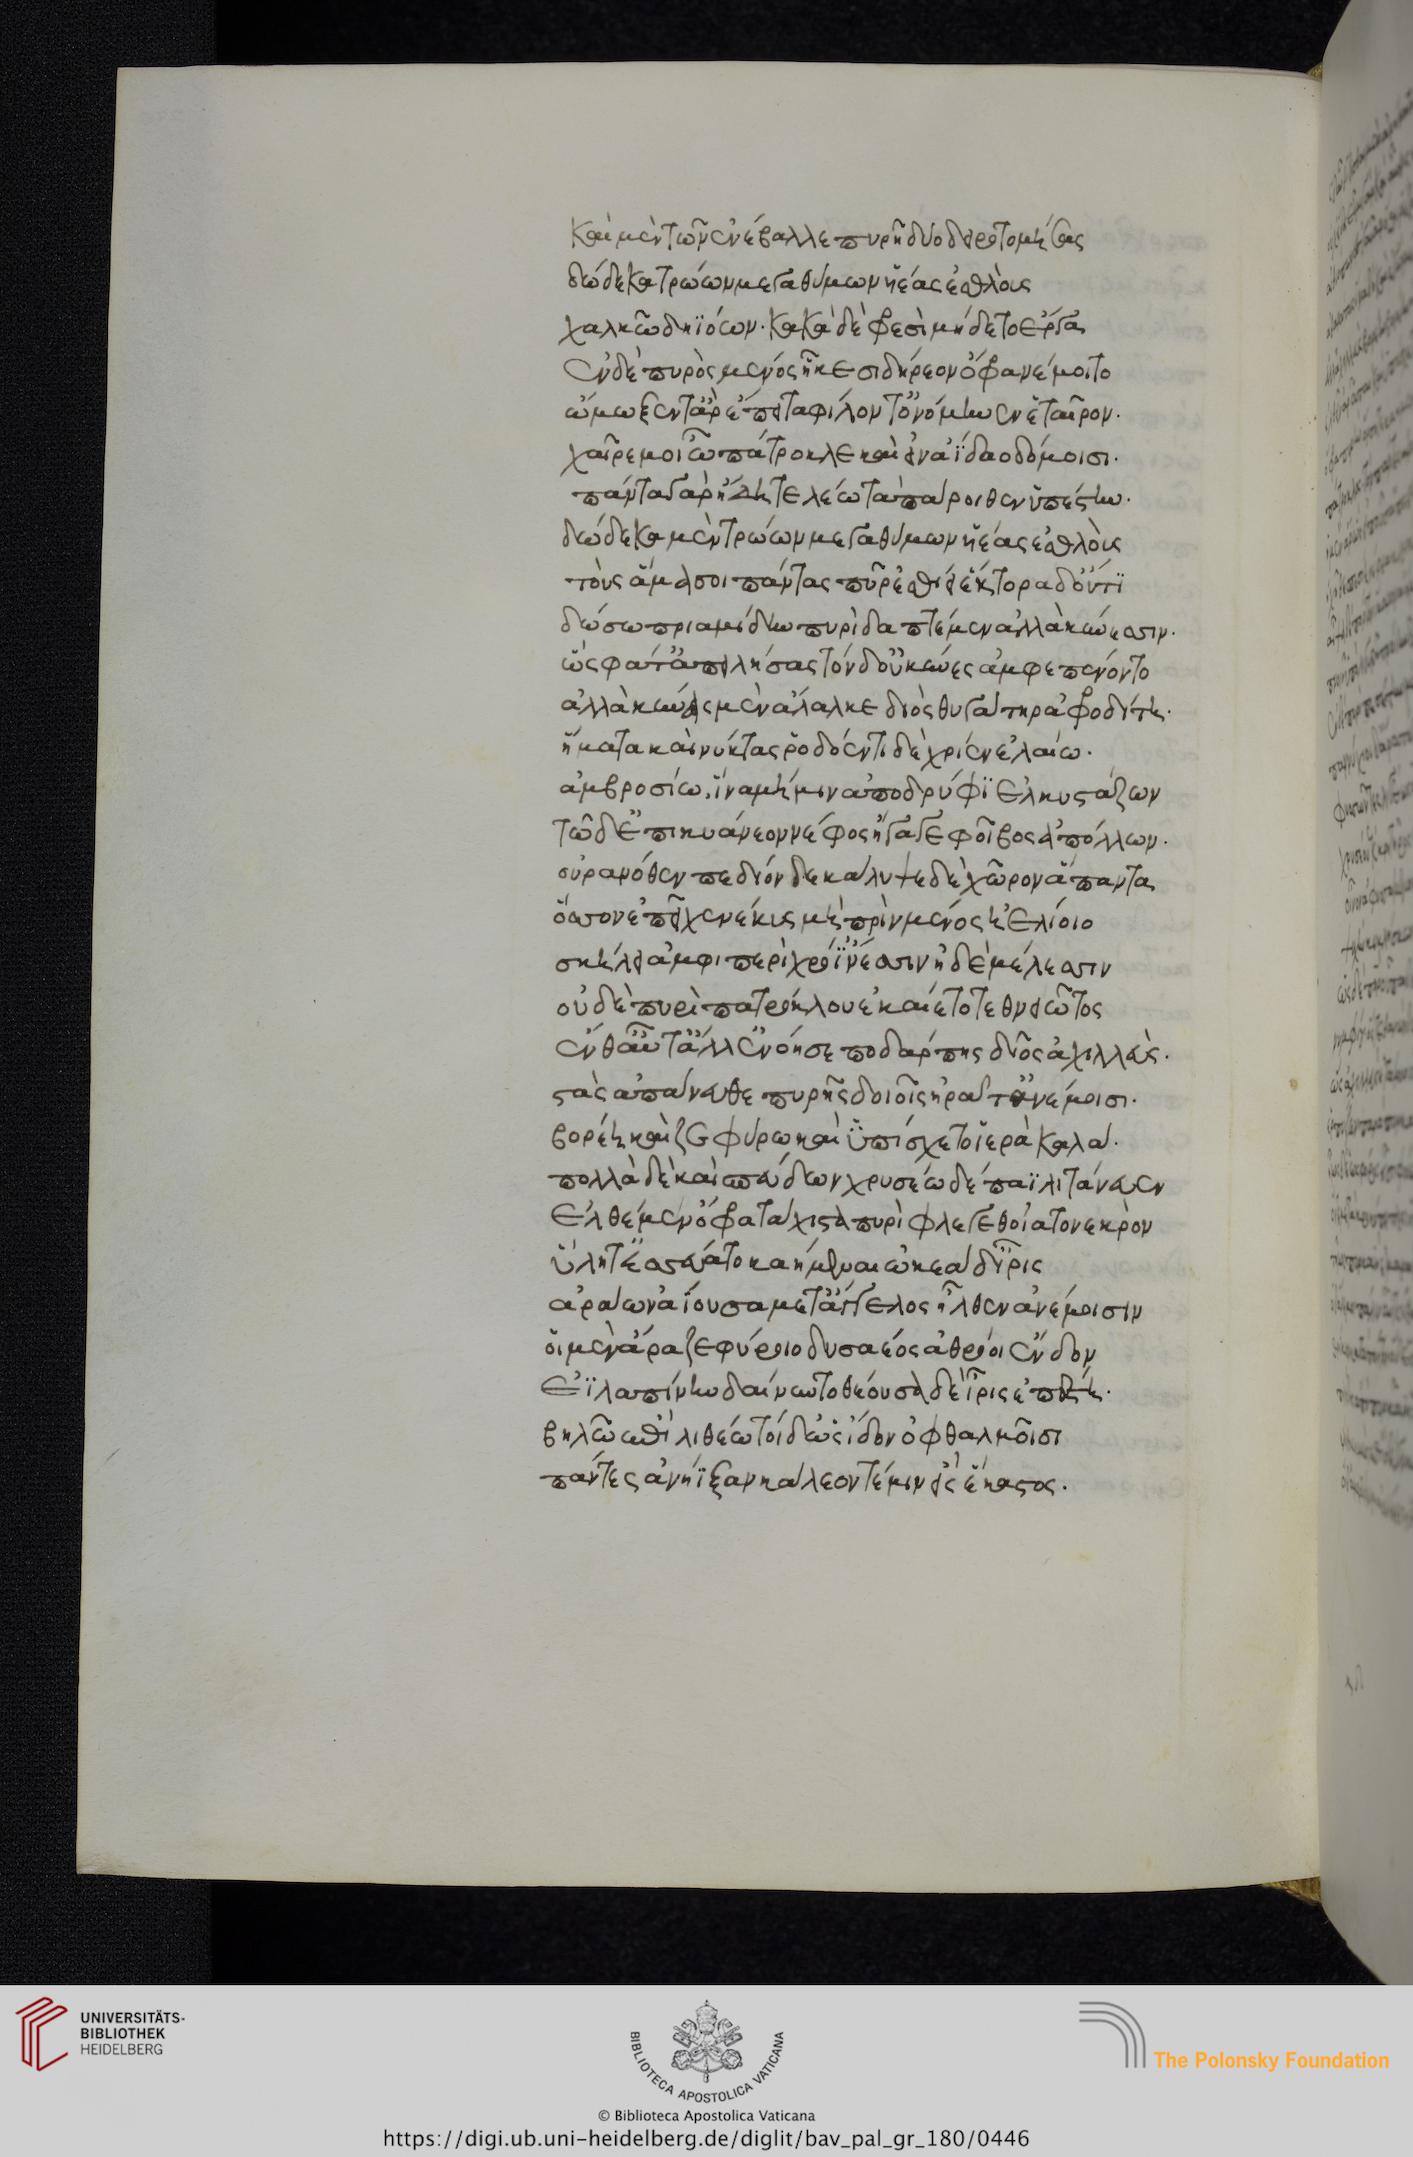 καὶ μὲν τῶν ἐνέβαλλε πυρῆ δύο δειροτομήσας
δώδεκα τρώων μεγαθύμων υἱέας ἐσθλοὺς
χαλκῶ δηϊόων· κακὰ δὲ φρεσὶ μήδετο ἔργα
ἐν δὲ πυρὸς μένος ἧκε σιδήρεον ὄφρα νέμοιτο
ὤμωξεν τ' ἂρ ἔπειτα φίλον τ' ὀνόμηνεν ἑταῖρον·
χαῖρε μοι ὦ πάτροκλε καὶ εἰν ἀΐδαο δόμοισι·
πάντα γὰρ ἤδη τελέω τὰ πάροιθεν ὑπέστην·
δώδεκα μὲν τρώων μεγαθύμων υἱέας ἐσθλοὺς
τοὺς ἅμα σοι πάντας πῦρ ἐσθίει ἕκτορα δ' οὔτι
δώσω πριαμίδην πυρὶ δαπτέμεν ἀλλὰ κύνεσσιν·
ὣς φάτ' ἀπειλήσας τόν δ' οὐ κύνες ἀμφεπένοντο
ἀλλὰ κύνας μὲν ἄλαλκε διὸς θυγάτηρ ἀφροδίτη·
ἤματα καὶ νύκτας ῥοδόεντι δὲ χρίεν ἐλαίω·
ἀμβροσίω. ἵνα μή μιν ἀποδρύφοι ἑλκυστάζων
τῶ δ' ἐπὶ κυάνεον νέφος ἤγαγε φοῖβος ἀπόλλων·
οὐρανόθεν πεδίον δε κάλυψε δὲ χῶρον ἅπαντα
ὅσσον ἐπεῖχε νέκυς μὴ πρὶν μένος ἠελίοιο
σκήλει' ἀμφὶ περὶ χρόϊ ἴνεσιν ἠδὲ μέλεσσιν
οὐδὲ πυρὴ πατρόκλου ἐκαίετο τεθνειῶτος
ἔνθ' αὖτ' ἄλλ' ἐνόησε ποδάρκης δῖος ἀχιλλεύς·
στὰς ἀπάνευθε πυρῆς δοιοῖς ἠρᾶτ' ἀνέμοισι·
βορέη καὶ ζεφύρω καὶ ὑπίσχετο ἱερὰ καλά·
πολλὰ δὲ καὶ σπένδων χρυσέω δέπαϊ λιτάνευεν
ἐλθέμεν ὄφρα τάχιστα πυρὶ φλεγεθοίατο νεκρὸν
ὕλη τ' ἐσσεύατο καήμεναι ὠκέα δ' ἶρις
ἀράων ἀΐουσα μετ' ἄγγελος ἦλθεν ἀνέμοισιν
οἱ μὲν ἄρα ζεφύροιο δυσαέος ἀθρόοι ἔνδον
εἰλαπίνην δαίνυντο θέουσα δὲ ἶρις ἐπέστη·
βηλῶ ἐπὶ λιθέω τοὶ δ' ὡς ἴδον ὀφθαλμοῖσι
πάντες ἀνήϊξαν κάλεόν τέ μιν εἰς ἓ ἕκαστος·
UNIVERSITÄTS-
BIBLIOTHEK
HEIDELBERG
BIBLIOTECA APOSTOLICA VATICANA
The Polonsky Foundation
© Biblioteca Apostolica Vaticana
https://digi.ub.uni-heidelberg.de/diglit/bav_pal_gr_180/0446